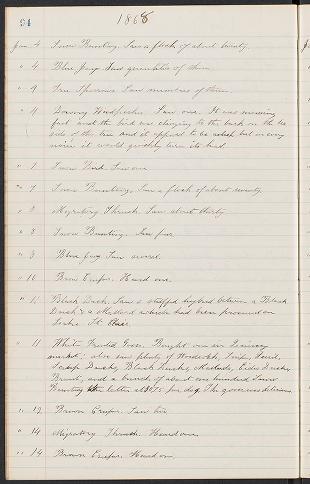 94 1868
Jan. 4 Snow Bunting. Saw a flock of about twenty.
" 4 Blue Jay. Saw quantities of them.
" 4 Tree Sparrow. Saw numbers of them.
" 4 Downy Woodpecker. Saw one. It was snowing
fast and the bird was clinging to the bark on the lee
side of the tree and it appeared to be asleep but at every
noise it would quickly turn its head.
" 7 Snow Bird. Saw one
" 7 Snow Bunting. Saw a flock of about seventy
" 8 Migratory Thrush. Saw about thirty
" 8 Snow Bunting. Saw four
" 8 Blue Jay. Saw several.
" 10 Brown Creeper. Heard one.
" 11 Black Duck. Saw a stuffed hybrid between a Black
Duck & a Mallard which had been procured on
Lake St.
" 11 White Fronted Goose. Bought one in Quincy
market; also saw plenty of Woodcock, Snipe, Quail,
Scaup Ducks, Black Ducks, Mallards, Eider Ducks,
Brant, and a bunch of about one hundred Snow
Bunting the latter at per doz. The goose was delicious.
" 12 Brown Creeper. Saw two
" 14 Migratory Thrush. Heard one.
" 14 Brown Creeper. Heard one.